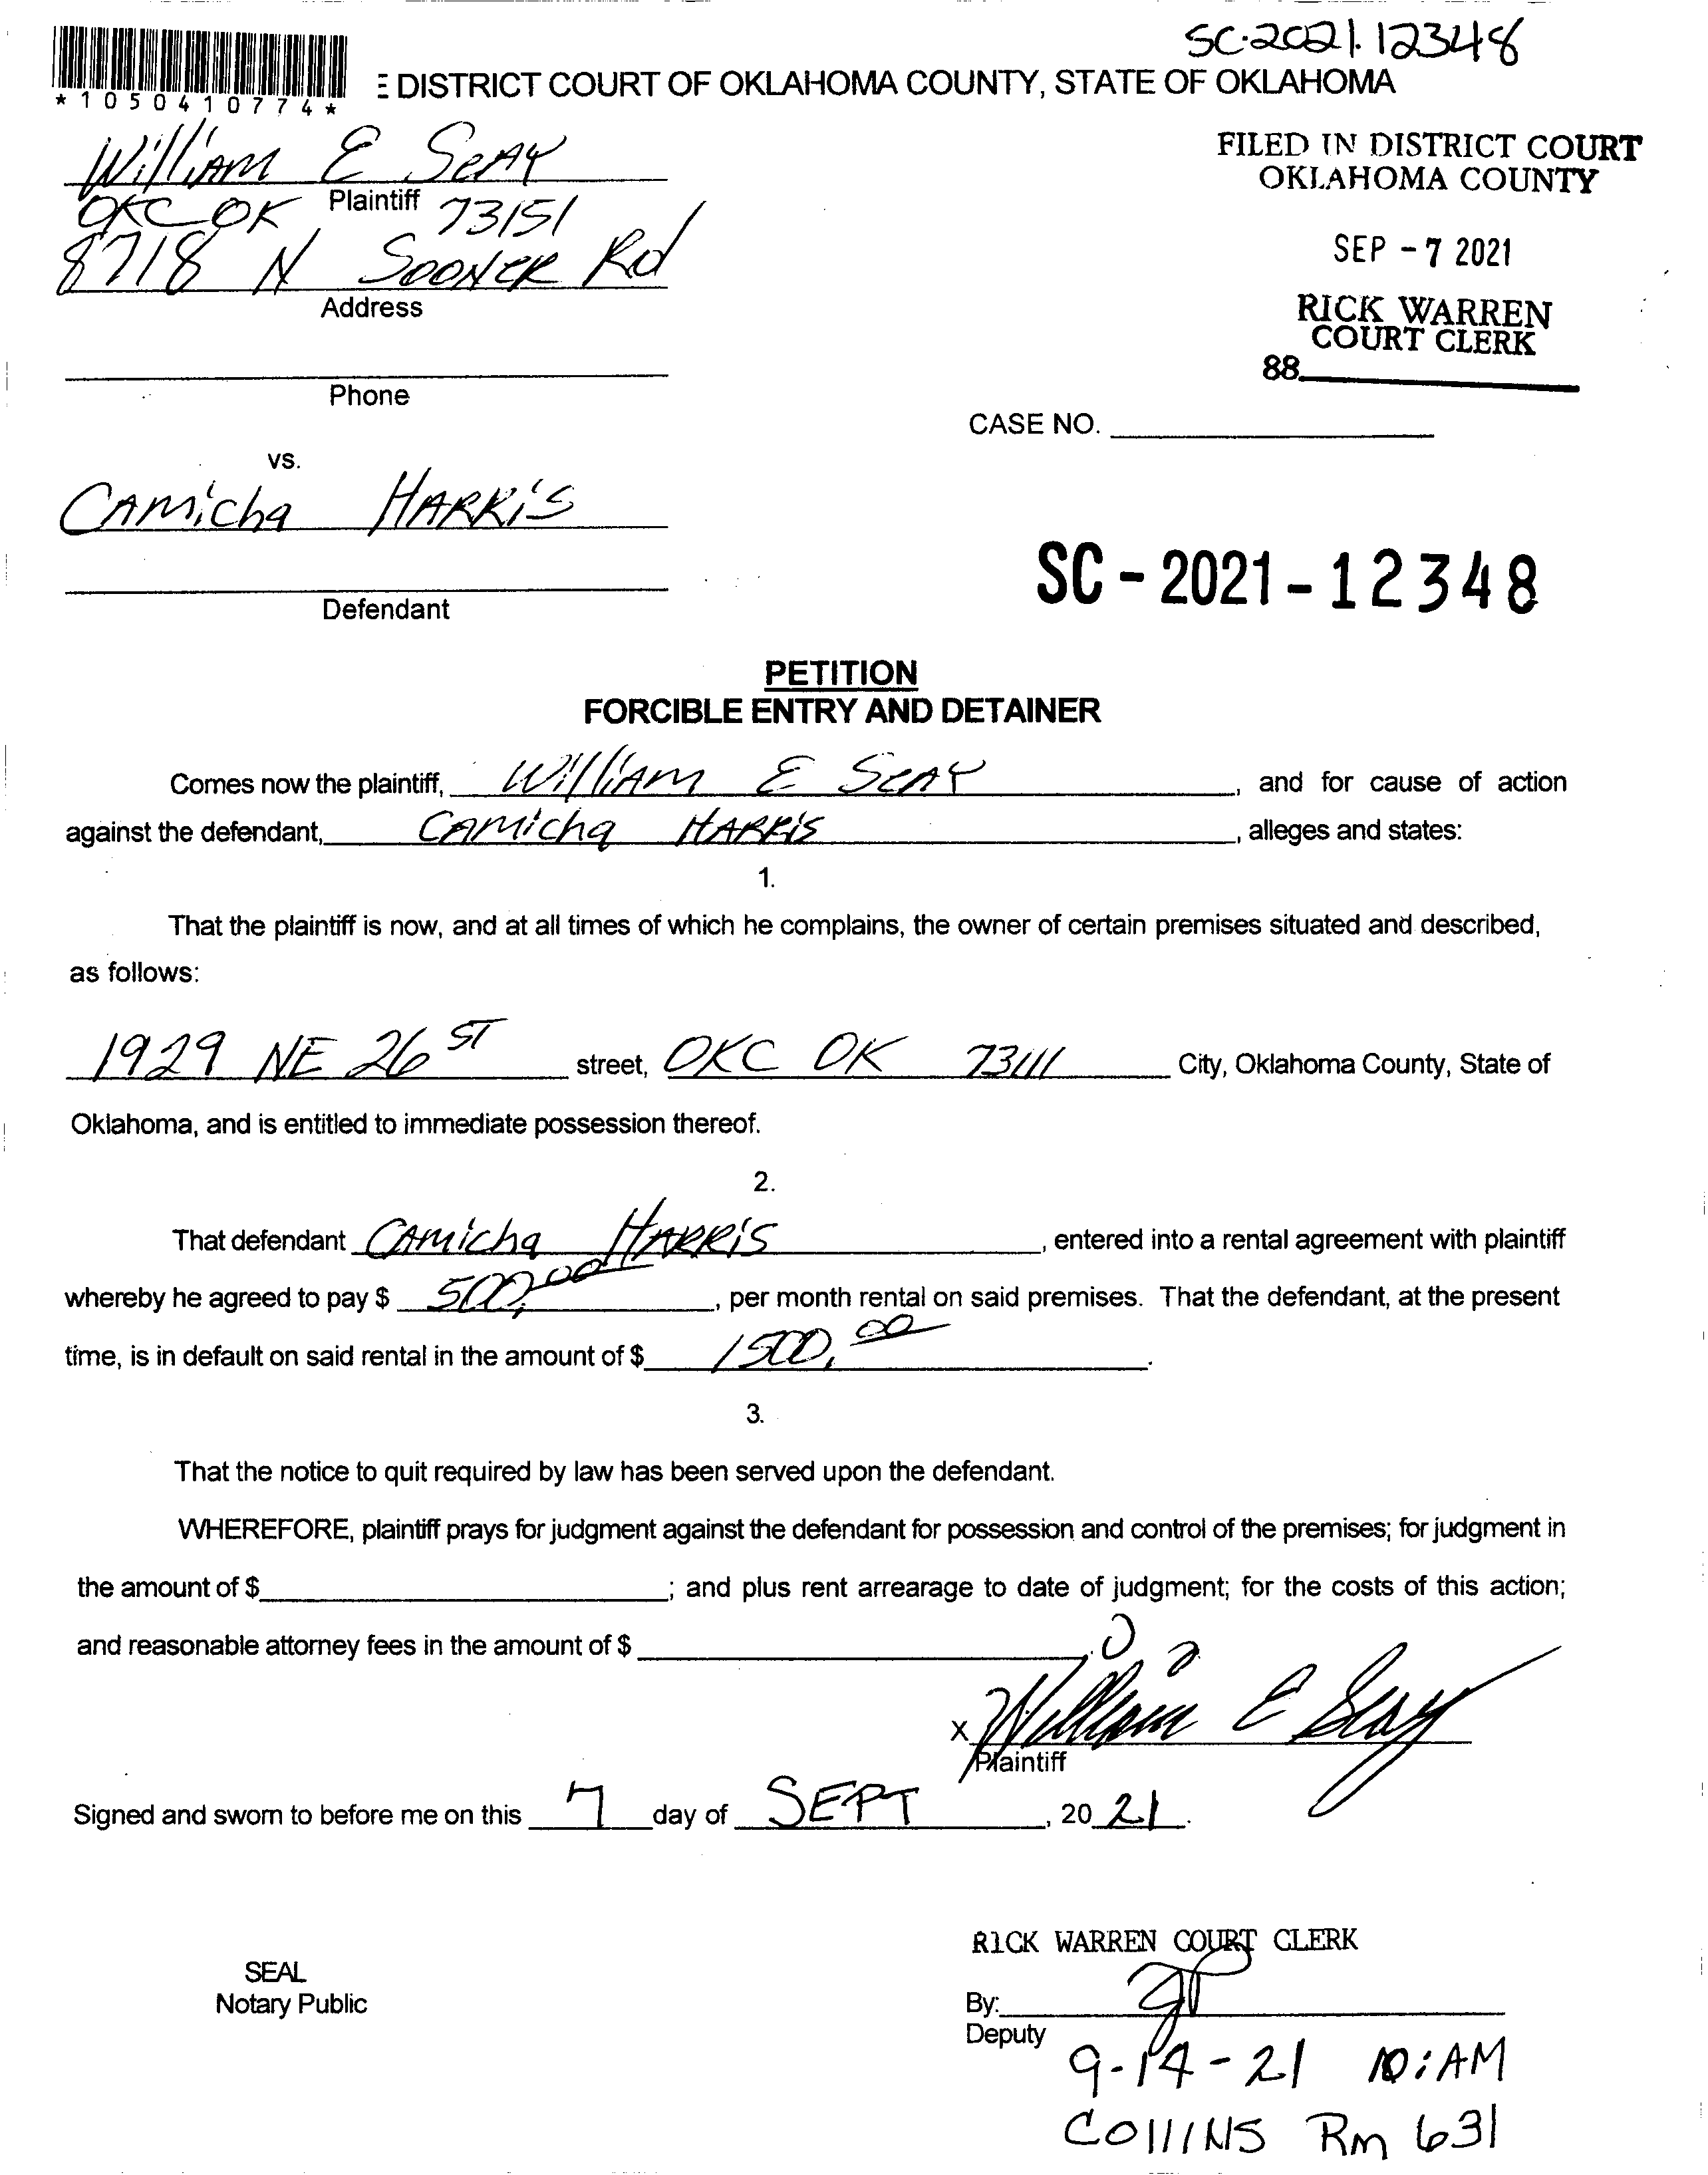 SC-2021-12348
*1050410774*
E DISTRICT COURT OF OKLAHOMA COUNTY, STATE OF OKLAHOMA
William E Seay
Plaintiff
OKC OK 73151
8718 N Sooner Rd
Address
Phone
FILED IN DISTRICT COURT
OKLAHOMA COUNTY
SEP - 7 2021
RICK WARREN
COURT CLERK
88
CASE NO.
vs.
Camicha Harris
Defendant
SC - 2021 - 12348
PETITION
FORCIBLE ENTRY AND DETAINER
Comes now the plaintiff, William E Seay, and for cause of action
against the defendant, Camicha Harris, alleges and states:
1.
That the plaintiff is now, and at all times of which he complains, the owner of certain premises situated and described,
as follows:
1929 NE 26 ST street, OKC OK 73111 City, Oklahoma County, State of
Oklahoma, and is entitled to immediate possession thereof.
2.
That defendant Camicha Harris, entered into a rental agreement with plaintiff
whereby he agreed to pay $ 500,00, per month rental on said premises. That the defendant, at the present
time, is in default on said rental in the amount of $ 1500,00.
3.
That the notice to quit required by law has been served upon the defendant.
WHEREFORE, plaintiff prays for judgment against the defendant for possession and control of the premises; for judgment in
the amount of $; and plus rent arrearage to date of judgment; for the costs of this action;
and reasonable attorney fees in the amount of $.
X William E Seay
Plaintiff
Signed and sworn to before me on this 7 day of SEPT, 20 21.
RICK WARREN COURT CLERK
SEAL
Notary Public
By:
Deputy
9-14-21 10:AM
Collins Rm 631